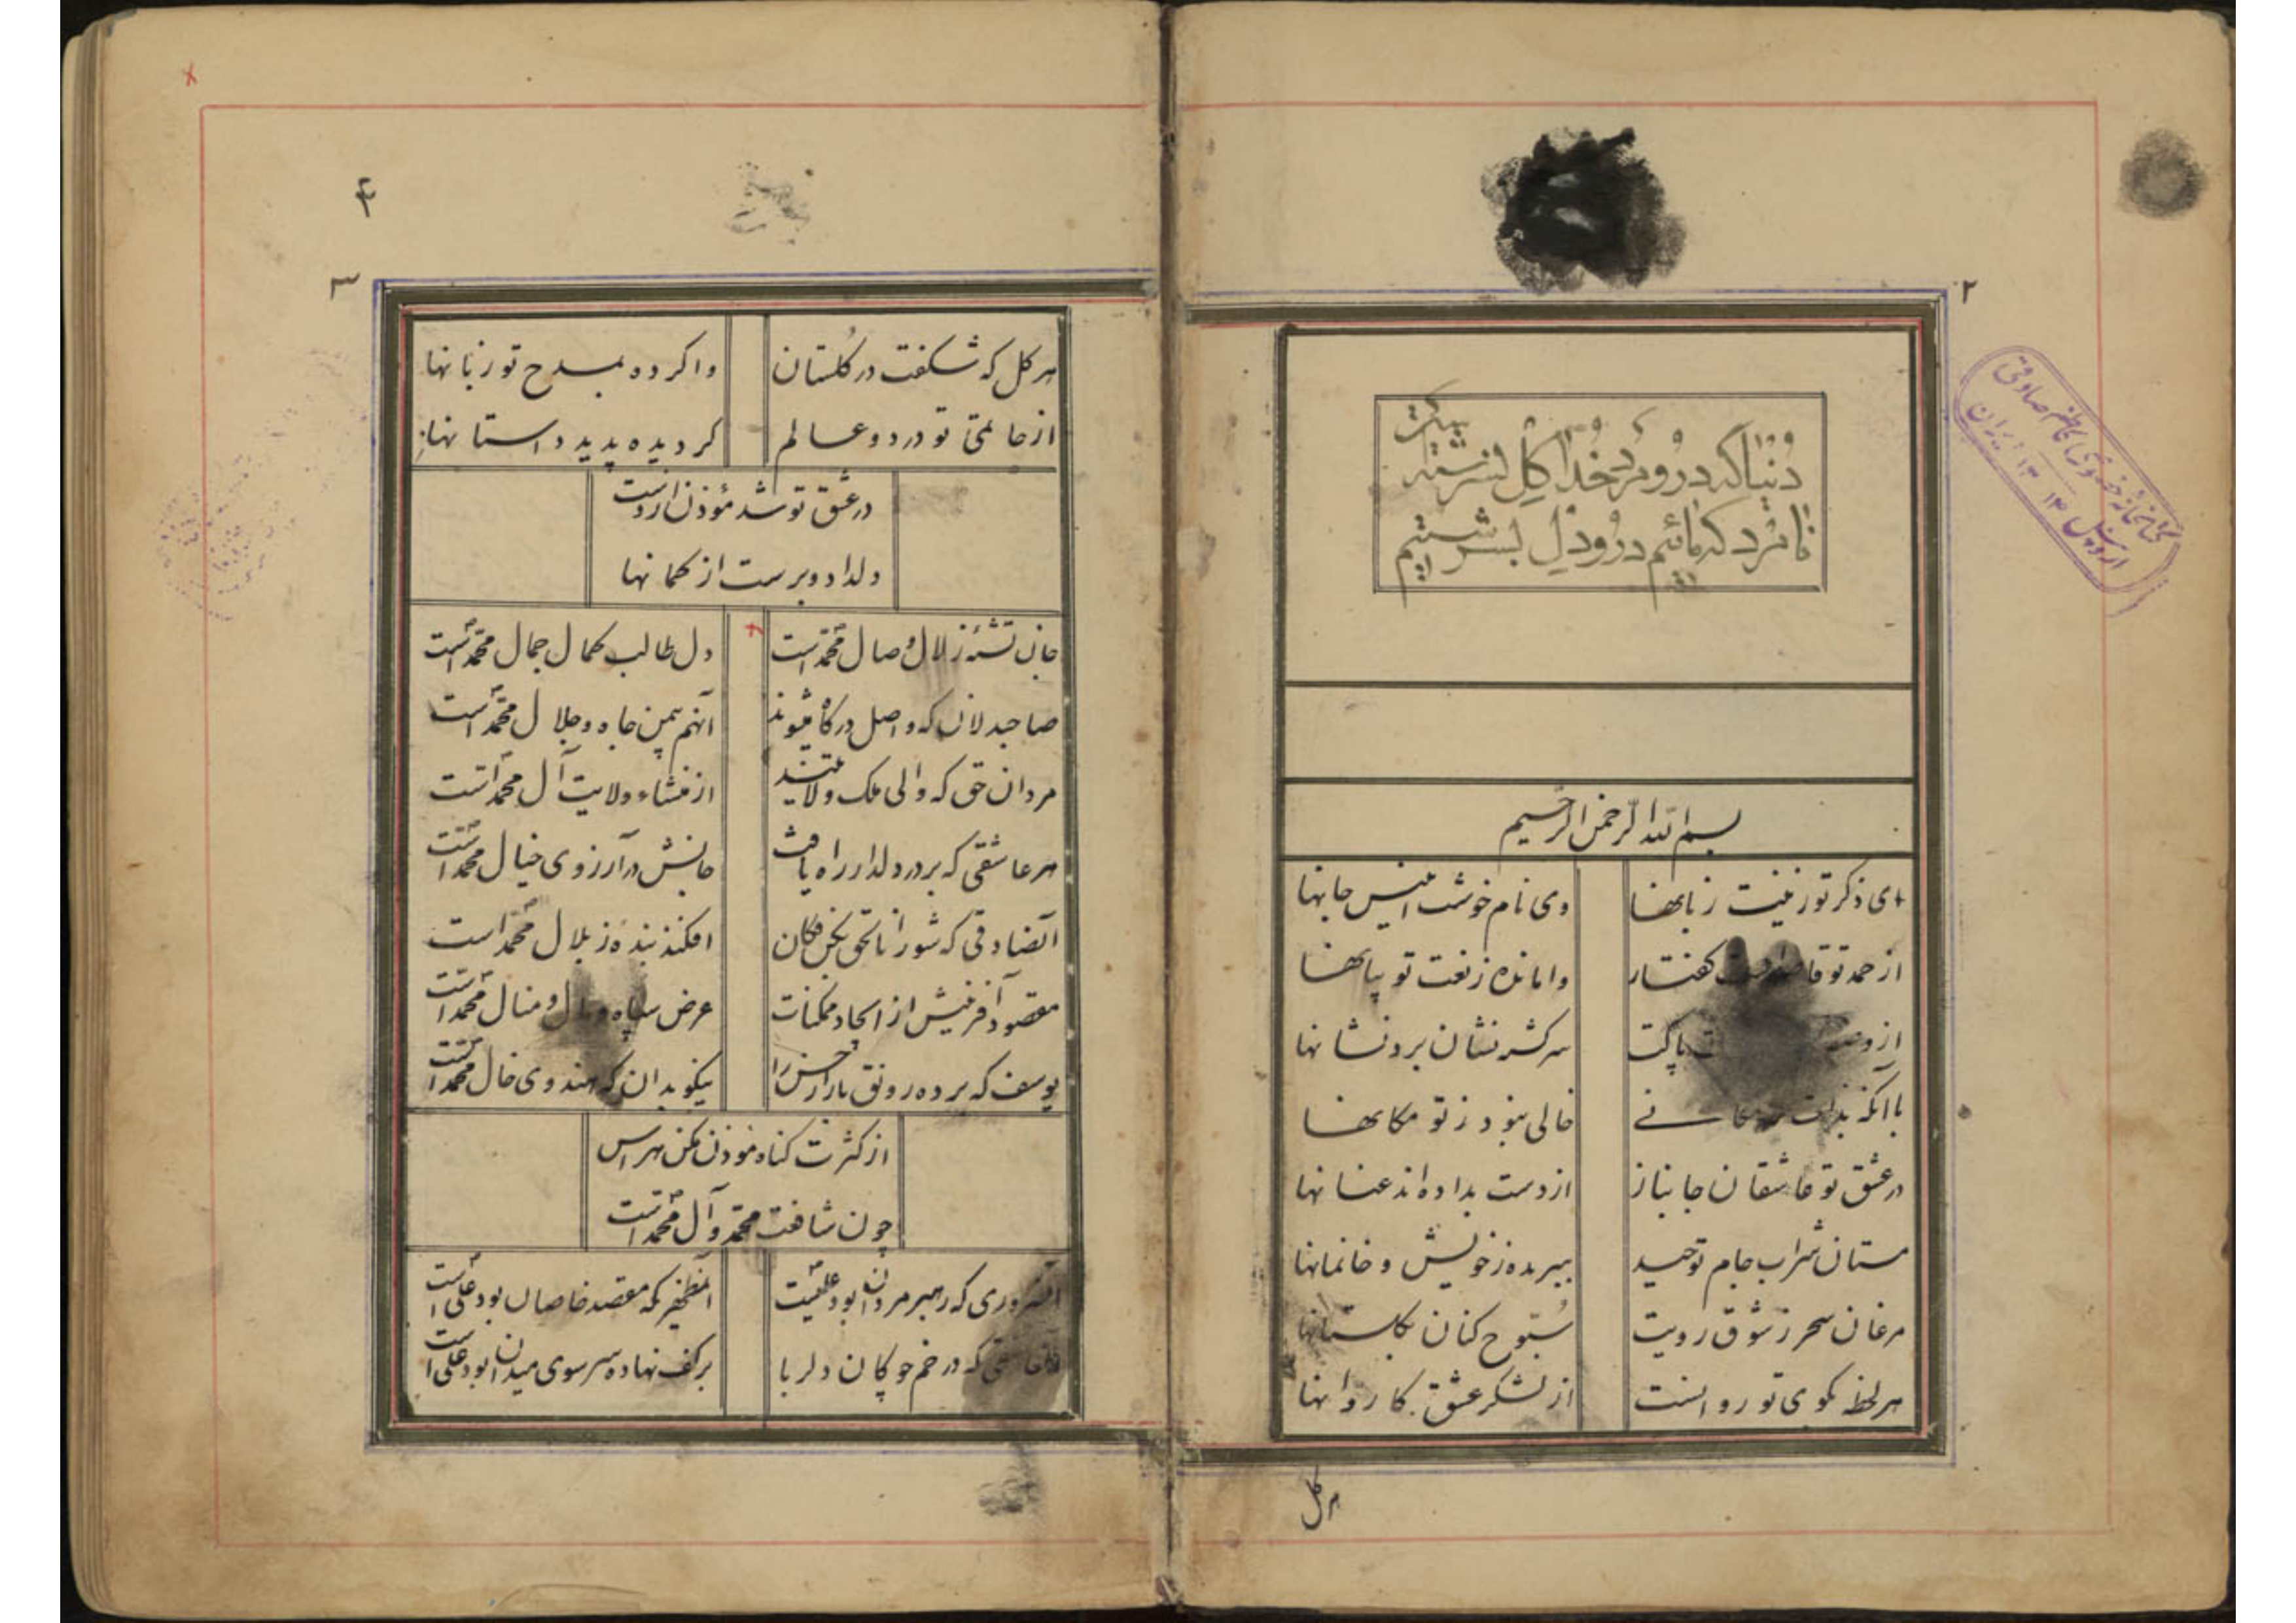 ۲
دنیا که درو مرد خدا گل نسرشته
نامرد که مائیم درو دل بسرشتیم
کتابخانه
اردبیل ۱۳ ایران
بسم الله الرحمن الرحیم
ای ذکر تو زینت زبانها وی نام خوشت انیس جانها
از حمد تو گفتار وامانده ز نعت تو بیانها
از پاکت سرگشته نشان برد نشانها
با آنکه بذات خالی نبود ز تو مکانها
در عشق تو عاشقان جانباز از دست بداده اند عنانها
مستان شراب جام توحید ببریده ز خویش و خانمانها
مرغان سحر ز شوق رویت سبوح کنان بگلستانها
هر لحظه بکوی تو روانست از لشکر عشق کاروانها
هر گل
۴
۳
هر گل که شگفت در گلستان واکرده بمدح تو زبانها
از خاتمی تو در دو عالم گردیده پدید داستانها
در عشق تو شد مؤذن از دست
دلداد و برست از گمانها
جان تشنهٔ زلال وصال محمد است دل طالب کمال جمال محمد است
صاحبدلان که واصل درگاه میشوند آنهم بیمن جاه و جلال محمد است
مردان حق که والی ملک ولایتند از منشاء ولایت آل محمد است
هر عاشقی که بر در دلدار راه یافت جانش در آرزوی خیال محمد است
آنصادقی که شور انا الحق افکند بندهٔ ز بلال محمد است
مقصود آفرینش از ایجاد ممکنات عرض سپاه و مال و منال محمد است
یوسف که برده رونق بازار حسن را نیکو بدان که هندوی خال محمد است
از کثرت گناه مؤذن مکن هراس
چون شافعت محمد و آل محمد است
آنسروری که رهبر مردان بود علیست آنمظهری که مقصد خاصان بود علی است
که در خم چوگان دلربا بر کف نهاده سر سوی میدان بود علی است